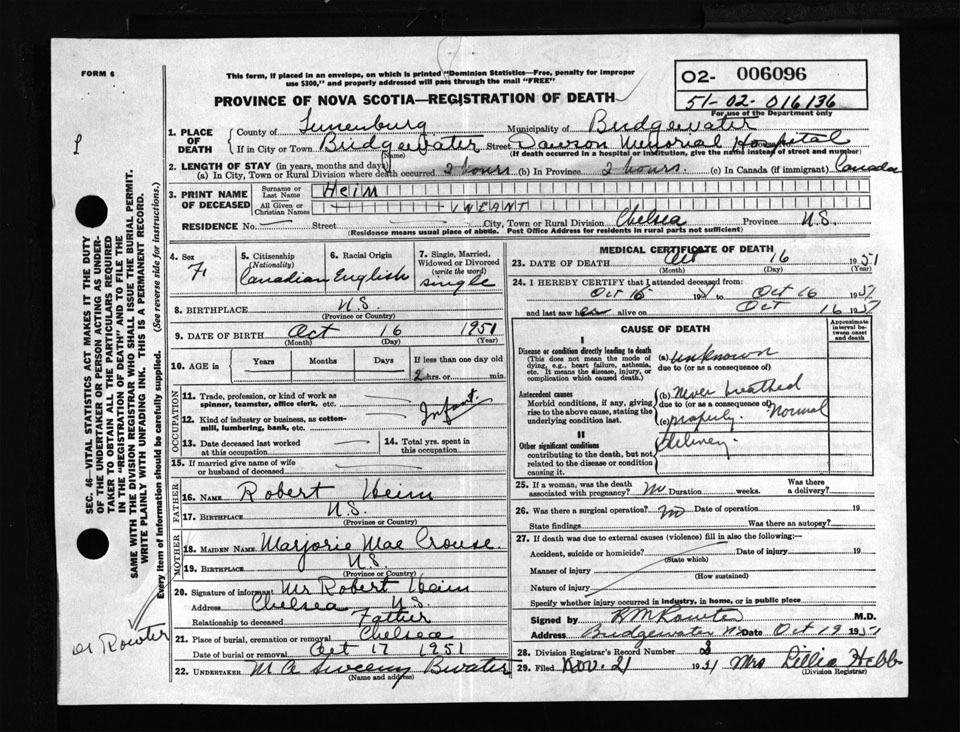 FORM 6
This form, if placed in an envelope, on which is printed "Dominion Statistics—Free, penalty for improper
use $300," and properly addressed will pass through the mail "FREE"
O2- 006096
51-02-016136
For use of the Department only
PROVINCE OF NOVA SCOTIA—REGISTRATION OF DEATH
1. PLACE OF DEATH County of Lunenburg Municipality of Bridgewater
If in City or Town Bridgewater Street Dawson Memorial Hospital
(Name) (If death occurred in a hospital or institution, give the name instead of street and number)
2. LENGTH OF STAY (in years, months and days)
(a) In City, Town or Rural Division where death occurred 2 hours (b) In Province 2 hours. (c) In Canada (if immigrant) Canada
3. PRINT NAME OF DECEASED Surname or Last Name Heim
All Given or Christian Names INFANT
RESIDENCE No. Street City, Town or Rural Division Chelsea Province N.S.
(Residence means usual place of abode. Post Office Address for residents in rural parts not sufficient)
4. Sex F.
5. Citizenship (Nationality) Canadian
6. Racial Origin English
7. Single, Married, Widowed or Divorced (write the word) single
8. BIRTHPLACE N.S.
(Province or Country)
9. DATE OF BIRTH Oct 16 1951
(Month) (Day) (Year)
10. AGE in Years Months Days If less than one day old
2 hrs. or min.
OCCUPATION
11. Trade, profession, or kind of work as spinner, teamster, office clerk, etc. Infant.
12. Kind of industry or business, as cotton-mill, lumbering, bank, etc.
13. Date deceased last worked at this occupation
14. Total yrs. spent in this occupation
15. If married give name of wife or husband of deceased
FATHER
16. NAME Robert Heim
17. BIRTHPLACE N.S.
(Province or Country)
MOTHER
18. MAIDEN NAME Marjorie Mae Crouse.
19. BIRTHPLACE N.S.
(Province or Country)
20. Signature of informant Mr Robert Heim
Address Chelsea N.S.
Relationship to deceased Father
21. Place of burial, cremation or removal Chelsea
Date of burial or removal Oct 17 1951
22. UNDERTAKER M A Sweeny B'water
(Name and address)
MEDICAL CERTIFICATE OF DEATH
23. DATE OF DEATH Oct 16 1951
(Month) (Day) (Year)
24. I HEREBY CERTIFY that I attended deceased from:
Oct 16 1951 to Oct 16 1951
and last saw her alive on Oct 16 1951
CAUSE OF DEATH
Approximate interval between onset and death
I
Disease or condition directly leading to death
(This does not mean the mode of dying, e.g., heart failure, asthenia, etc. It means the disease, injury, or complication which caused death.)
(a) unknown
due to (or as a consequence of)
Antecedent causes
Morbid conditions, if any, giving rise to the above cause, stating the underlying condition last.
(b) Never breathed
due to (or as a consequence of)
(c) properly Normal
II
Other significant conditions contributing to the death, but not related to the disease or condition causing it.
Delivery.
25. If a woman, was the death associated with pregnancy? No Duration weeks. Was there a delivery?
26. Was there a surgical operation? No Date of operation 19
State findings Was there an autopsy?
27. If death was due to external causes (violence) fill in also the following:—
Accident, suicide or homicide? Date of injury 19
(State which)
Manner of injury
(How sustained)
Nature of injury
Specify whether injury occurred in industry, in home, or in public place
Signed by R M Rowter M.D.
Address Bridgewater NS Date Oct 19 1951
28. Division Registrar's Record Number
29. Filed Nov. 21 1951 Mrs Lillia Hebb
(Division Registrar)
SEC. 46—VITAL STATISTICS ACT MAKES IT THE DUTY
OF THE UNDERTAKER OR PERSON ACTING AS UNDER-
TAKER TO OBTAIN ALL THE PARTICULARS REQUIRED
IN THE "REGISTRATION OF DEATH" AND TO FILE THE
SAME WITH THE DIVISION REGISTRAR WHO SHALL ISSUE THE BURIAL PERMIT.
WRITE PLAINLY WITH UNFADING INK. THIS IS A PERMANENT RECORD.
Every item of information should be carefully supplied. (See reverse side for instructions.)
Dr Rowter